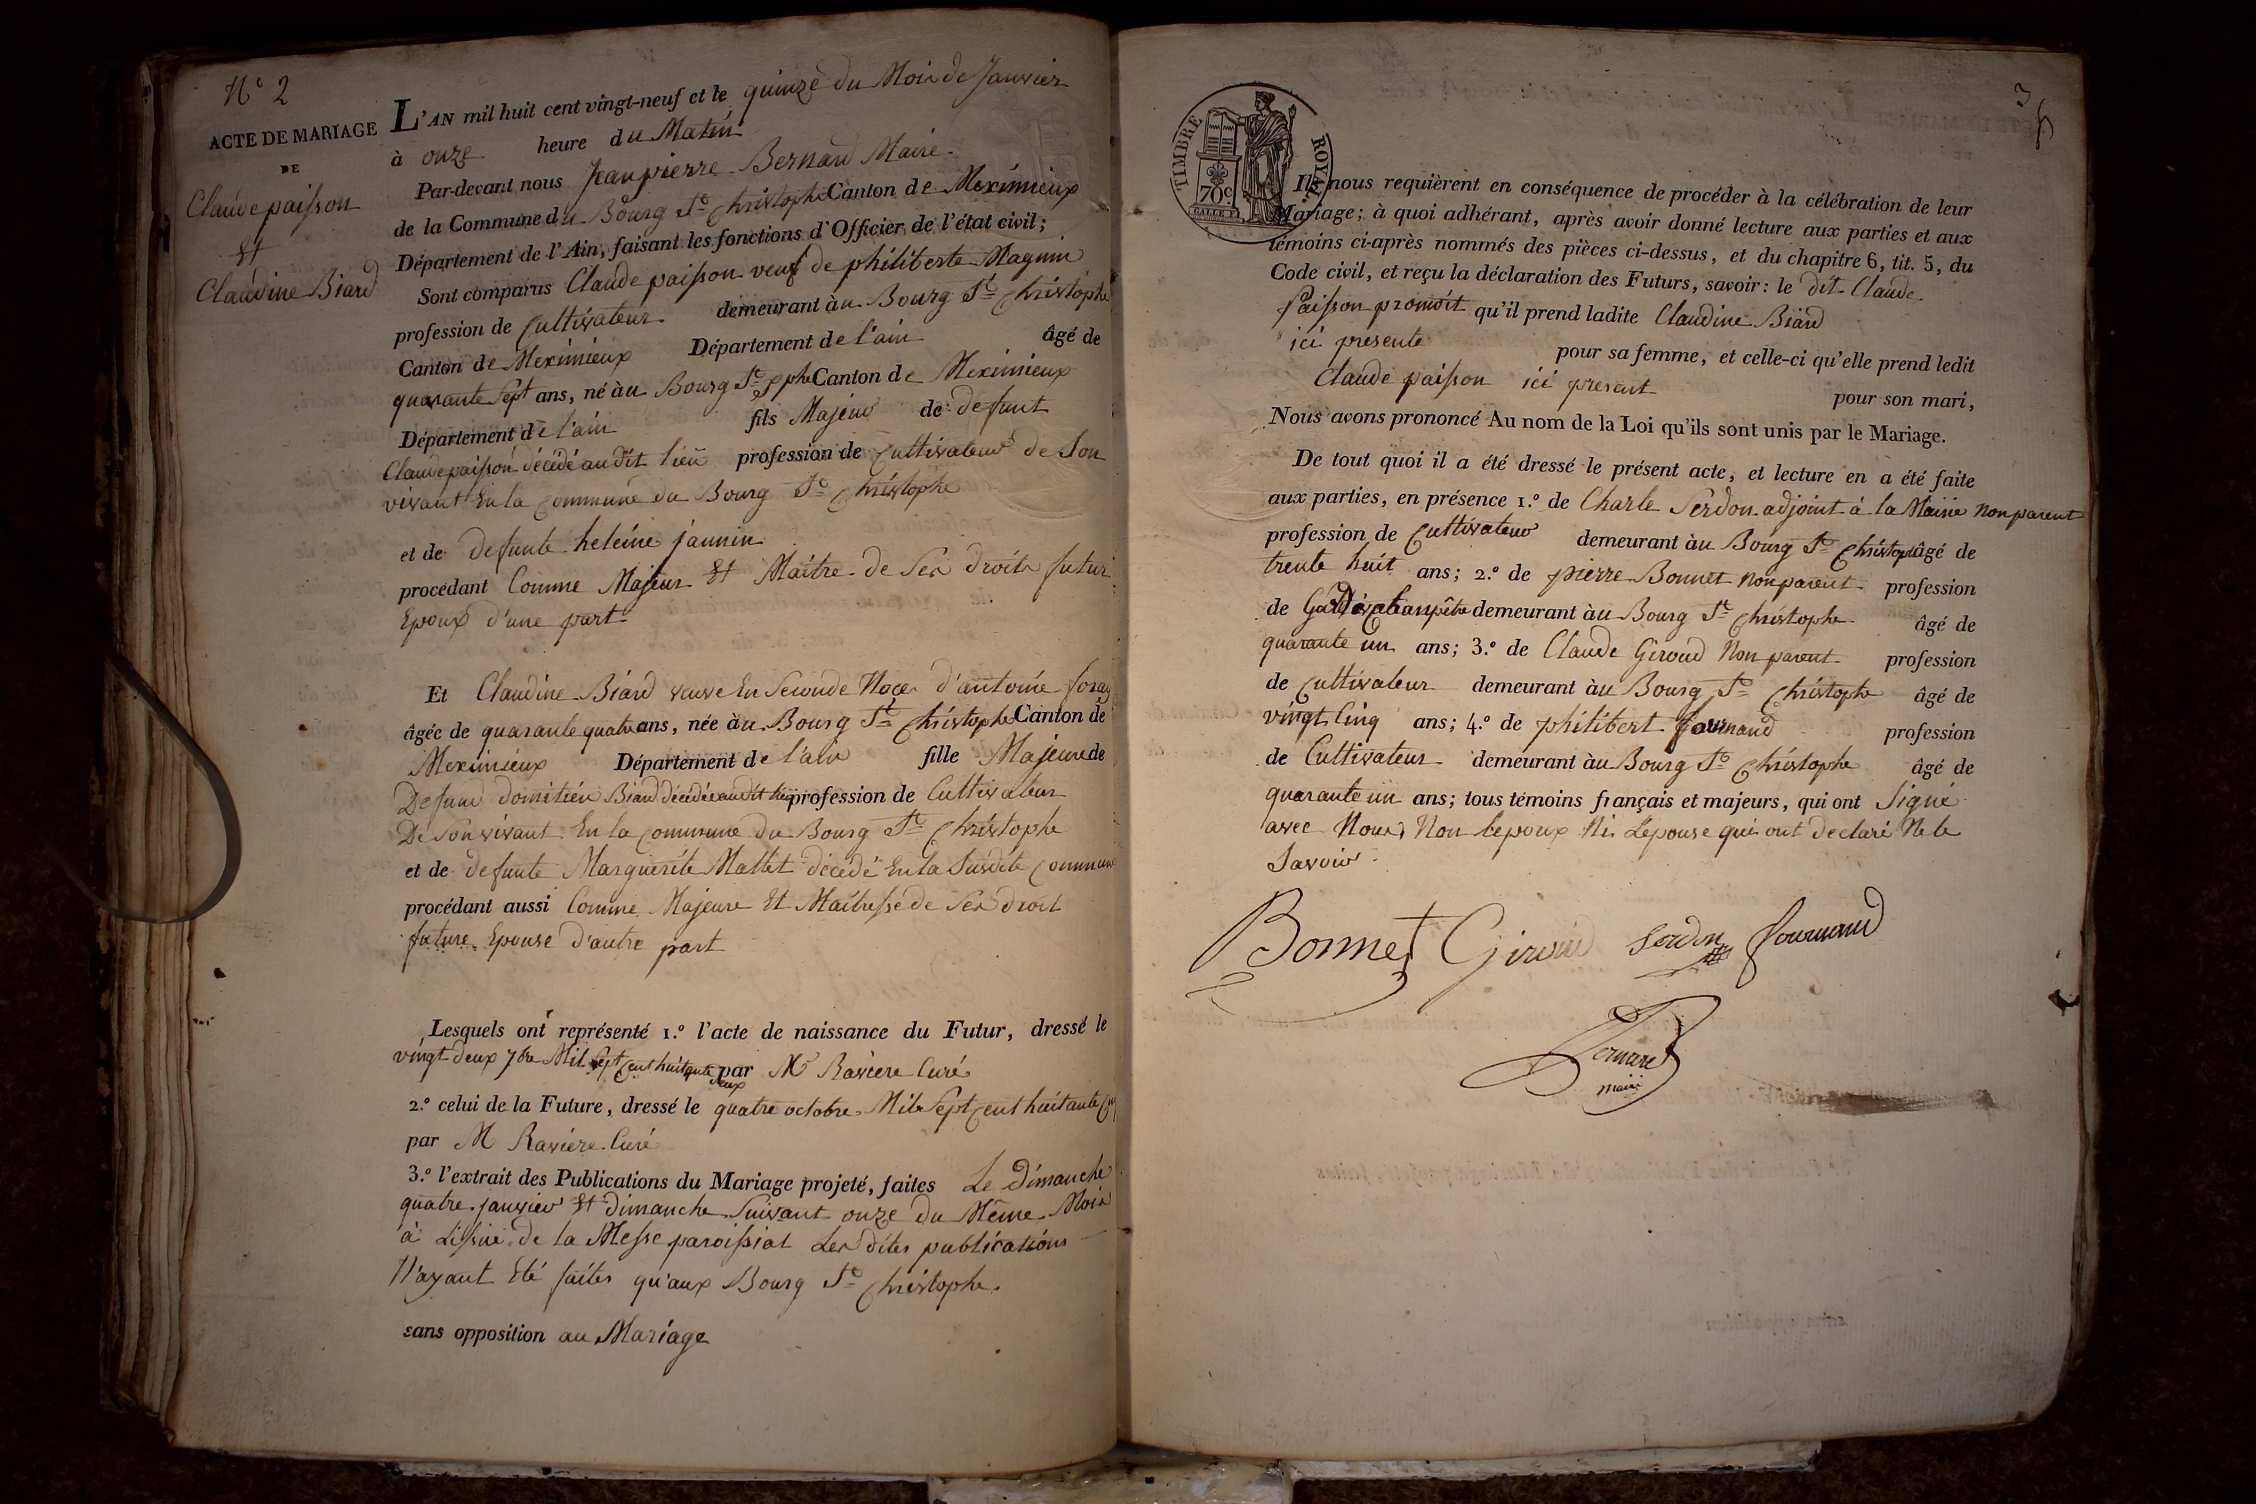 N° 2
ACTE DE MARIAGE
DE
Claude paisson
Et
Claudine Biard
L'AN mil huit cent vingt-neuf et le quinze du Mois de Janvier
à onze heure du Matin
Par-devant nous Jeanpierre Bernard Maire
de la Commune du Bourg St Christophe Canton de Meximieux
Département de l'Ain, faisant les fonctions d'Officier de l'état civil;
Sont comparus Claude paisson veuf de philiberte Magnin
profession de Cultivateur demeurant àu Bourg St Christophe
Canton de Meximieux Département de l'ain âgé de
quarante Sept ans, né àu Bourg St xphe Canton de Meximieux
Département de l'ain fils Majeur de defunt
Claude paisson décédé au dit lieu profession de Cultivateur de Son
vivant En la Commune du Bourg St Christophe
et de defunte heleine jannin
procédant Comme Majeur Et Maitre de Ses droits futur
Epoux d'une part
Et Claudine Biard veuve En Seconde Noce d'antoine foray
âgée de quarante quatre ans, née àu Bourg St Christophe Canton de
Meximieux Département de l'ain fille Majeure de
Defunt domitien Biard décédée audit lieu profession de Cultivateur
De son vivant En la Commune du Bourg St Christophe
et de defunte Marguerite Mallet décédé En la Susdite Commune
procédant aussi Comme Majeure Et Maitresse de Ses droit
future Epouse d'autre part
Lesquels ont représenté 1.° l'acte de naissance du Futur, dressé le
vingt deux 7bre Mil Sept Cent huitante deux par Mr Raviere Curé
2.° celui de la Future, dressé le quatre octobre Mil Sept Cent huitante
par M Raviere Curé
3.° l'extrait des Publications du Mariage projeté, faites Le Dimanche
quatre janvier Et dimanche Suivant onze du Même Mois
à L'issue de la Messe paroissial Les dites publications
N'ayant Eté faites qu'aux Bourg St Christophe
sans opposition au Mariage
3
TIMBRE ROYAL
70c
Ils nous requièrent en conséquence de procéder à la célébration de leur
Mariage; à quoi adhérant, après avoir donné lecture aux parties et aux
témoins ci-après nommés des pièces ci-dessus, et du chapitre 6, tit. 5, du
Code civil, et reçu la déclaration des Futurs, savoir: le dit Claude
Paisson promoit qu'il prend ladite Claudine Biard
ici presente pour sa femme, et celle-ci qu'elle prend ledit
Claude paisson ici present pour son mari,
Nous avons prononcé Au nom de la Loi qu'ils sont unis par le Mariage.
De tout quoi il a été dressé le présent acte, et lecture en a été faite
aux parties, en présence 1.° de Charle Serdon adjoint à la Mairie Non parent
profession de Cultivateur demeurant àu Bourg St Christophe âgé de
trente huit ans; 2.° de pierre Bonnet Non parent profession
de Garde Champêtre demeurant àu Bourg St Christophe âgé de
quarante un ans; 3.° de Claude Giroud Non parent profession
de Cultivateur demeurant àu Bourg St Christophe âgé de
vingt Cinq ans; 4.° de philibert fournand profession
de Cultivateur demeurant àu Bourg St Christophe âgé de
quarante un ans; tous témoins français et majeurs, qui ont Signé
avec Nous, Non lepoux Ni Lepouse qui ont declaré Ne le
Savoir
Bonnet Giroud Serdon fournand
Bernard
maire